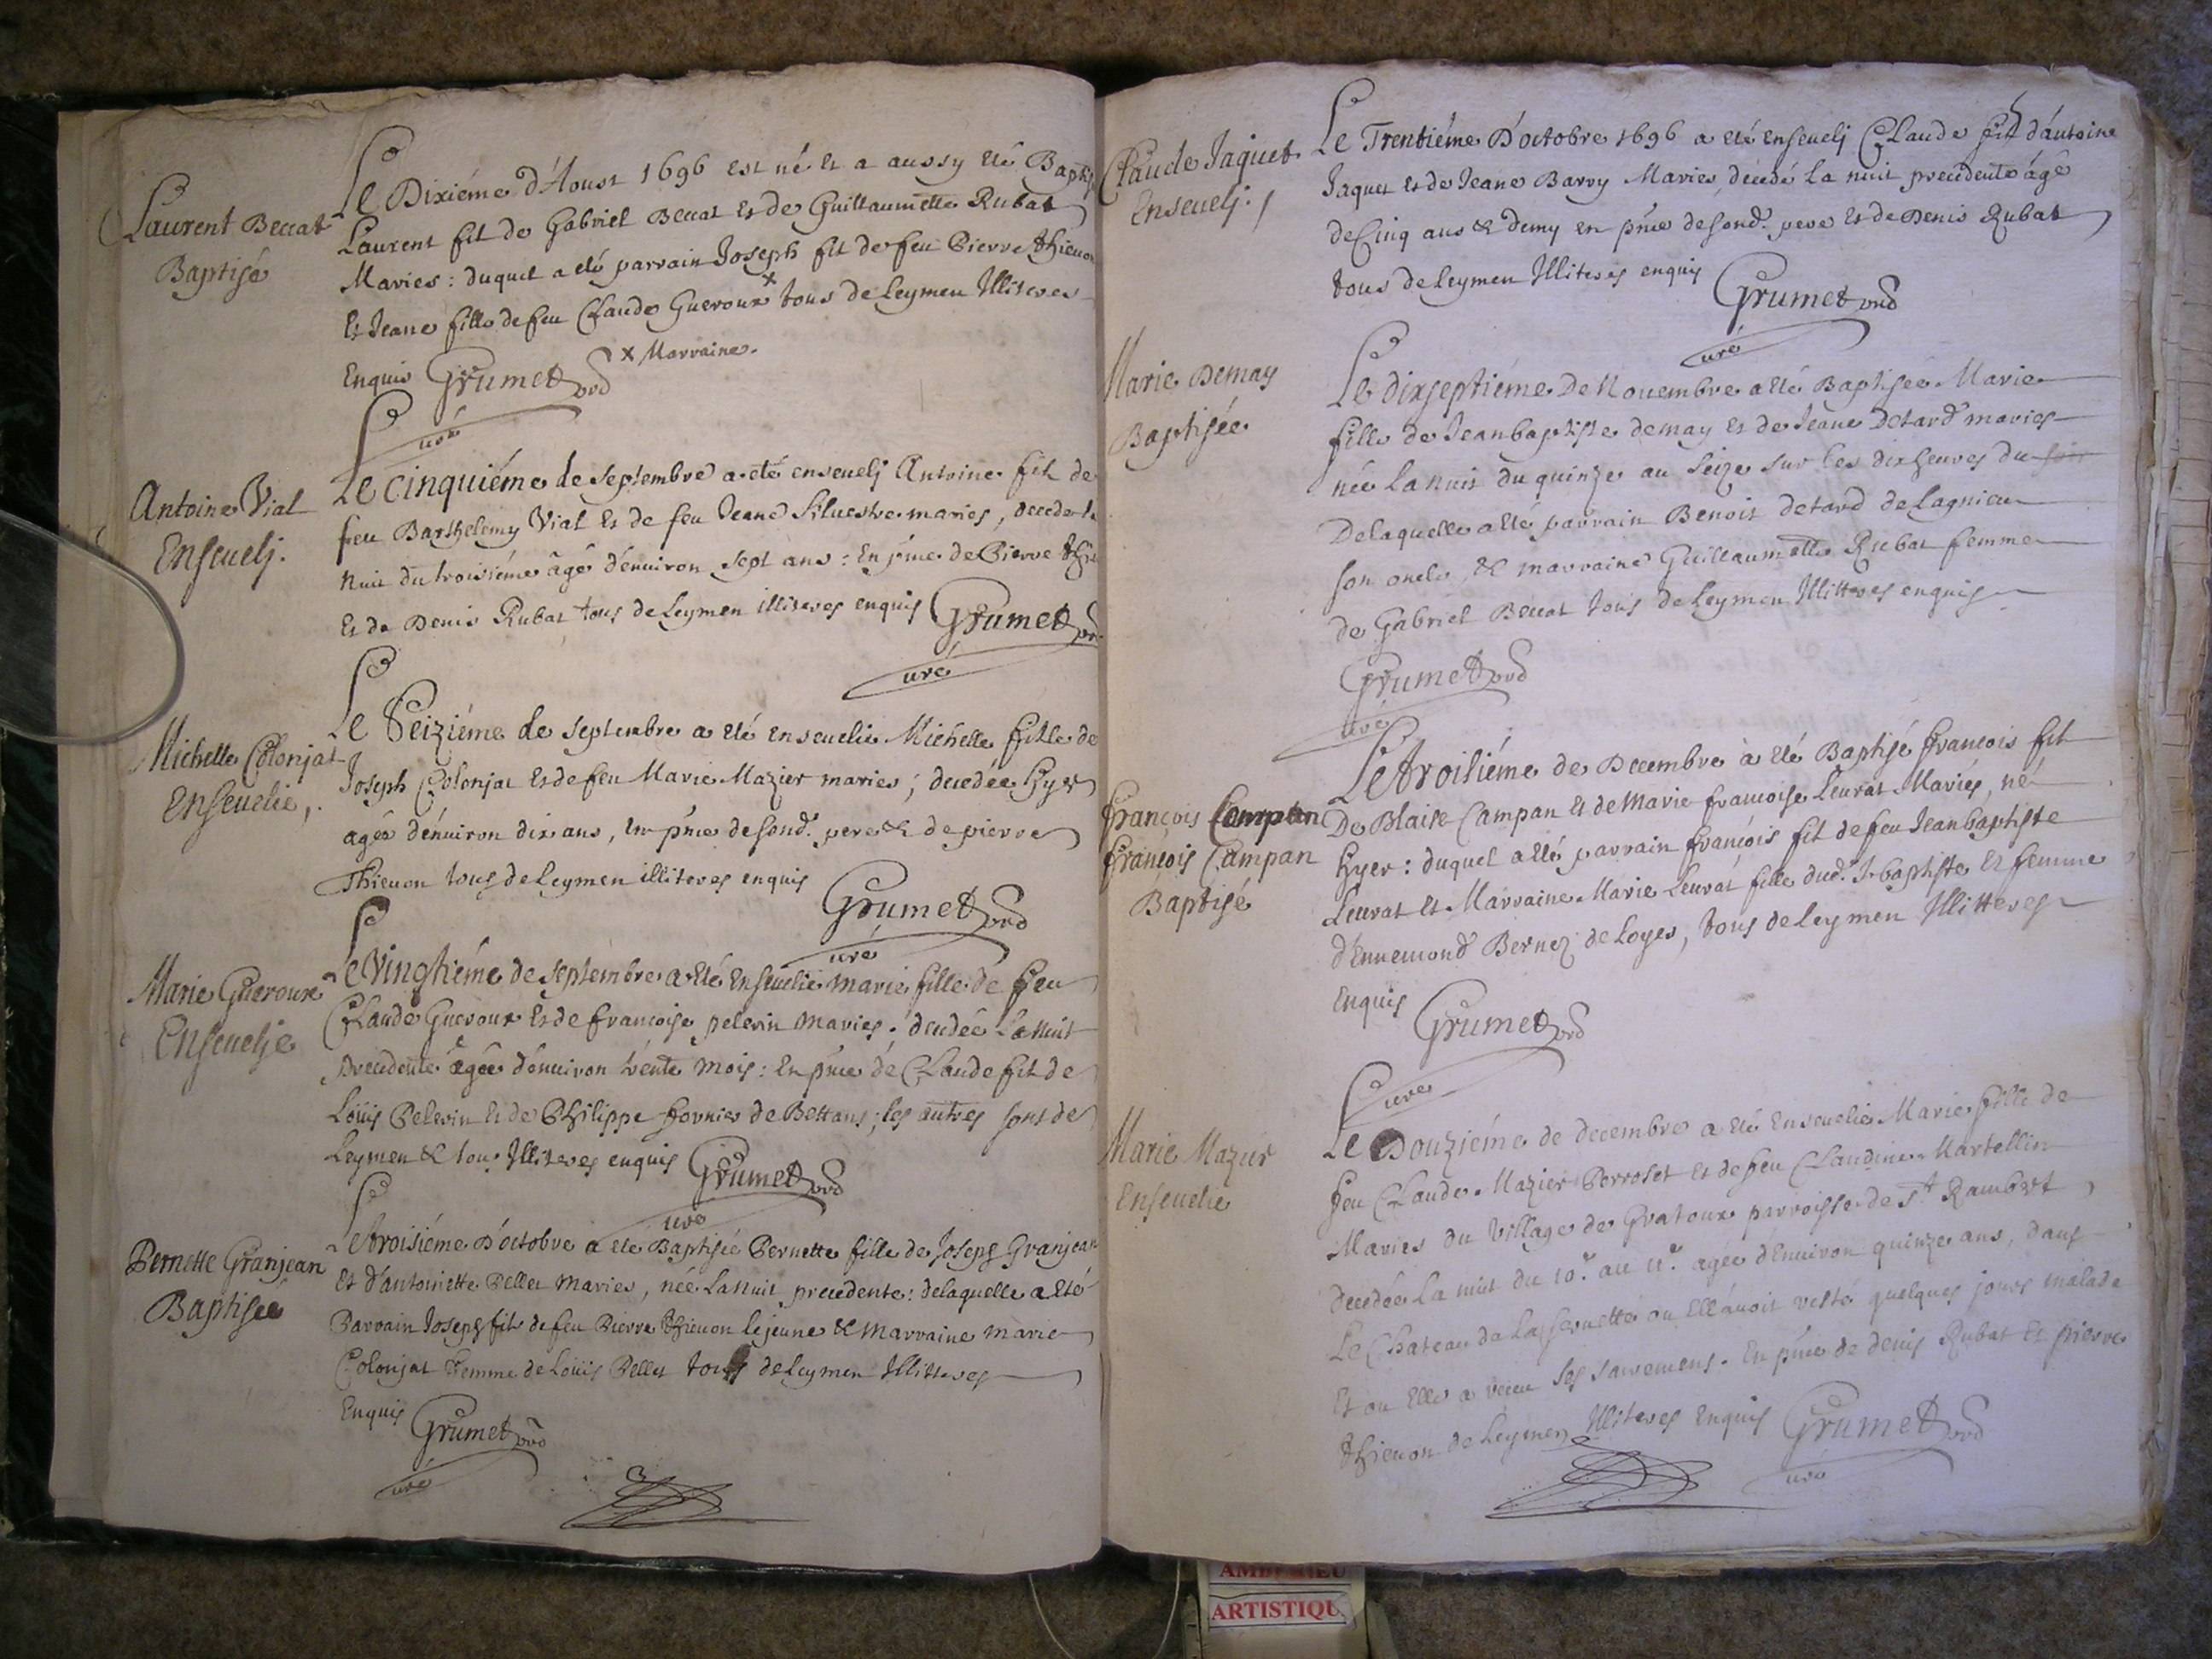 Laurent Beccat
Baptisé
Le Dixiéme d'Aoust 1696 est né et a aussy eté Baptisé
Laurent fil de Gabriel Beccat et de Guillaumette Rubat
Mariés : duquel a eté parrain Joseph fil de feu Pierre Thievon
Et Jeane fille de feu Claude Gueroux x tous de Leymen Illiteres
Enquis Grumet curé
x Marraine.
Antoine Vial
Ensevelj.
Le cinquiéme de septembre a eté ensevelj Antoine fil de
feu Barthelemy Vial et de feu Jeane Silvestre mariés, decedé la
nuit du troisiéme âgé d'environ sept ans : En pnce de Pierre
Et de Denis Rubat tous de Leymen illiteres enquis Grumet
curé
Michelle Colonjat
Ensevelie,
Le Seiziéme de septembre a eté ensevelie Michelle fille de
Joseph Colonjat et de feu Marie Mazier mariés ; decedée Hyer
agée d'environ dix ans, En pnce desond. pere & de pierre
Thievon tous de Leymen illiteres enquis
Grumet
curé
Marie Gueroux
Ensevelje
Le Vingtiéme de septembre a eté Ensevelie Marie fille de feu
Claude Gueroux et de francoise pelerin Mariés. decedée La nuit
Precedente âgée d'environ trente mois : En pnce de Claude fil de
Loüis Pelerin et de Philippe fornier de Bettans ; les autres sont de
Leymen & tous Illiteres enquis Grumet
curé
Pernette Granjean
Baptisée
Le troisiéme D'octobre a eté Baptisée Pernette fille de Joseph Granjean
Et d'antoinette Pellet Mariés, née La nuit precedente : delaquelle a Eté
Parrain Joseph fil de feu Pierre Thievon le jeune & Marraine Marie
Colonjat femme de Loüis Pellet tous de Leymen Illitteres
Enquis Grumet
curé
Claude Jaquet
Ensevelj.
Le Trentiéme D'octobre 1696 a eté Ensevelj Claude fil d'antoine
Jaquet et de Jeane Barry Mariés, decedé La nuit precedente âgé
de Cinq ans & demy en pnce desond. pere Et de Denis Rubat
tous de Leymen Illiteres enquis
Grumet
curé
Marie Demay
Baptisée
Le dixseptiéme De Novembre a eté Baptisée Marie
fille de Jean baptiste demay et de Jeane Detard mariés
née La nuit du quinze au seize sur les dix heures du soir
Delaquelle a eté parrain Benoit detard de Lagnieu
son oncle, & marraine Guillaumette Rubat femme
de Gabriel Beccat tous de Leymen Illitteres enquis
Grumet
curé
François Campan
François Campan
Baptisé
Le troisiéme de Decembre à eté Baptisé francois fil
De Blaise Campan et de Marie francoise Leurat Mariés, né
Hyer : duquel a eté parrain françois fil de feu Jean baptiste
Leurat et Marraine Marie Leurat fille dud. J. baptiste et femme
d'Ennemond Bernez de Loyes, tous de Leymen Illitteres
Enquis
Grumet
curé
Marie Mazier
Ensevelie
Le Douziéme de decembre a eté Ensevelie Marie fille de
feu Claude Mazier Perroset et de feu Claudine Martellin
Mariés du Village de Gratoux parroisse de St Rambert
decedée La nuit du 10e. au 11e. agée d'Environ quinze ans, dans
Le Chateau de La servette ou Ell'avoit resté quelques jours malade
Et ou Elle a receu ses sacremens. En pnce de denis Rubat et pierre
Thievon de Leymen Illiteres Enquis Grumet
curé
AMBERIEU
ARTISTIQU